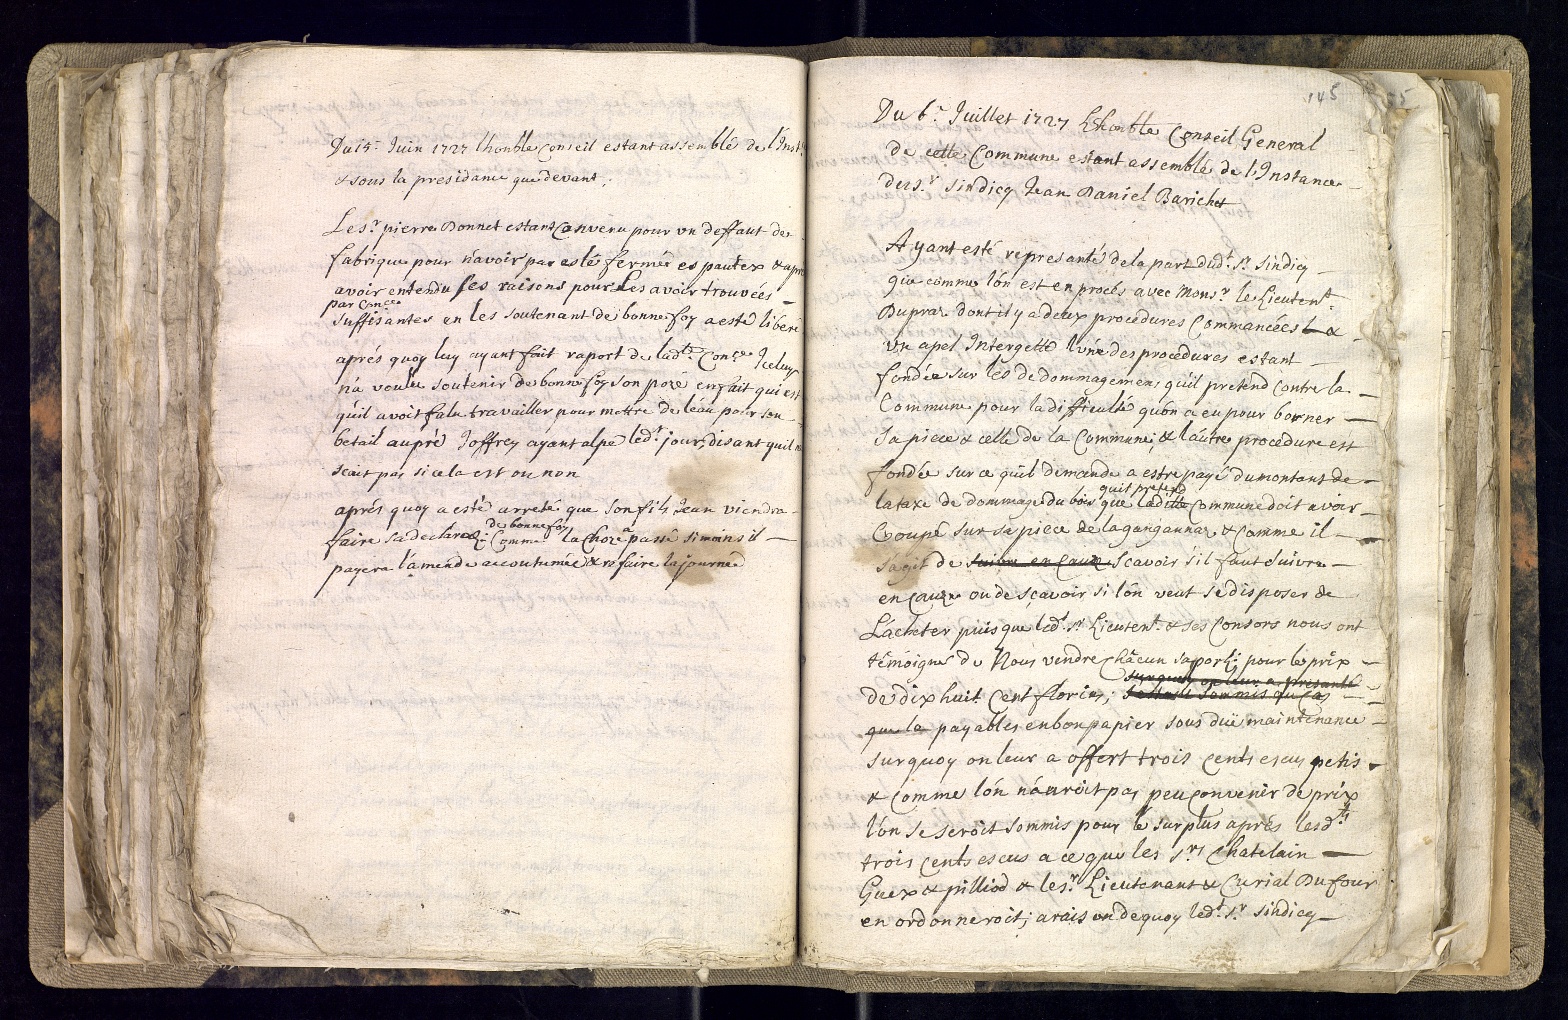 Du 15.e Juin 1727 lhonble Conseil estant assemblé de l'Inst.
& sous la presidance que devant,
Le sr. pierre Donnet estant Convenu pour un deffaut de
fabrique pour n'avoir pas esté fermér es pautex & apre
avoir entendu ses raisons pour les avoir trouvées
par Conce
suffisantes en les soutenant de bonne foy a esté liberé
aprés quoy luy ayant fait raport de lad.te Conce Iceluy
n'a voulu soutenir de bonne foy son pozé en fait qui est
qu'il avoit falu travailler pour mettre de l'eau pour son
betail au pré Joffrey ayant alpé led.t jour, disant quil n
scait pas si cela est ou non
aprés quoy a esté arreté que son fils Jean viendra
de bonne foy
faire sa declaraõn Comme la Choze a passé si moins il
payera l'amende accoutumée & refaire la journeé
145
Du 6.e Juillet 1727 Lhonble Conseil General
de cette Commune estant assemblé de l'Instance
du sr. sindicq Jean Daniel Barichet
Ayant esté representé de la part dud.t sr. sindicq
que comme lón est en procés avec Monsr. le Lieutent
Dupraz dont il y a deux procedures Commancées &
un apel Intergetté lune des procedures estant
fondée sur les dedommagemens qu'il pretend contre la
Commune pour la difficulté quón a eu pour borner
sa piece & celle de la Commune, & l'autre procedure est
fondée sur ce qu'il demande a estre payé du montant de
quil pretend
la taxe de dommage du bois que laditte Commune doit avoir
Coupé sur sa piece de la gangannaz & comme il
s'agit de suivre en Cauze scavoir s'il faut suivre
en Cauze ou de sçavoir si lón veut se disposer de
L'acheter puis que led.t sr Lieutent. & ses Consors nous ont
témoigné de Nous vendre Châcun sa portõn pour le prix
sur quoy on leur a presenté
de dix huit Cent florins,
que la payables en bon papier sous duë maintenance
sur quoy on leur a offert trois Cents escus petis
& Comme lón n'auroit pas peu Convenir de prix
lón se seroit sommis pour le surplus aprés lesd.ts
trois Cents escus a ce que les srs Chatelain
Guex & pilliod & les sr. Lieutenant & Curial Dufour
en ordonneroit; a raison de quoy led.t sr. sindicq